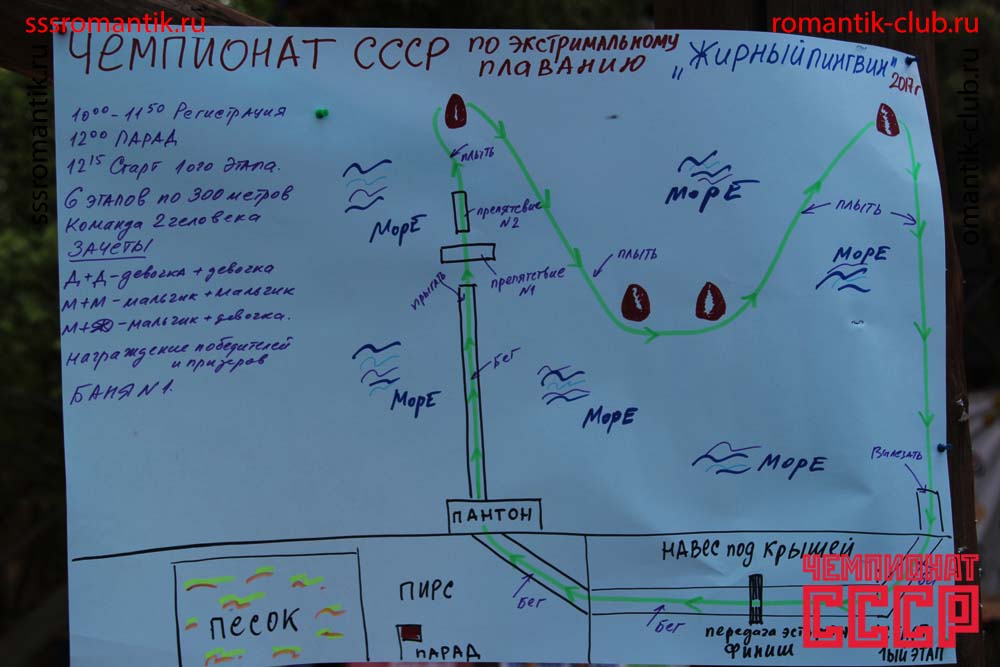 sssromantik.ru
romantik-club.ru
sssromantik.ru
omantik-club.ru
ЧЕМПИОНАТ СССР ПО ЭКСТРИМАЛЬНОМУ
ПЛАВАНИЮ
„ЖИРНЫЙ ПИНГВИН"
2017г
10⁰⁰-11⁵⁰ Регистрация
12⁰⁰ ПАРАД
12¹⁵ Старт 1ого этапа.
6 этапов по 300 метров
Команда 2 человека
ЗАЧЕТЫ
Д+Д-девочка + девочка
М+М-мальчик + мальчик
М+Д-мальчик + девочка.
Награждение победителей
и призеров
БАНЯ N1.
ПЛЫТЬ
МОРЕ
МОРЕ
ПЛЫТЬ
препятсвие
N2
МОРЕ
ПЛЫТЬ
препятствие
N1
прыгать
Бег
МОРЕ
МОРЕ
МОРЕ
Вылезать
ПАНТОН
НАВЕС ПОД КРЫШЕЙ
ЧЕМПИОНАТ
СССР
ПЕСОК
ПИРС
Бег
Бег
передача эст
Финиш
1ый ЭТАП
ПАРАД